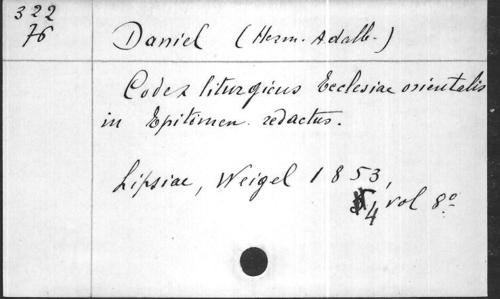 322
76
Daniel (Herm. Adalb.)
Codex liturgicus Ecclesiae orientalis
in Epitomen redactus.
Lipsiae, Weigel 1853,
4 vol 8º